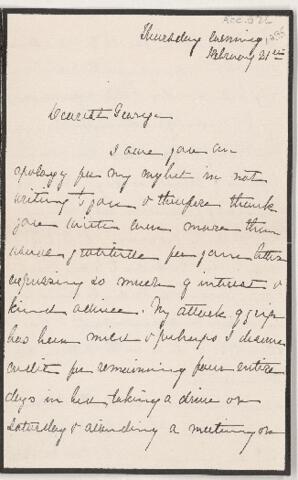 Thursday evening,
February 21st
Dearest George
I owe you an
apology for my neglect in not
writing to you & therefore thank
you with even more than
usual gratitude for your letter
expressing so much of interest &
kind advice. My attack of grip
has been mild & perhaps I deserve
credit for remaining four entire
days in bed, taking a drive on
Saturday & attending a meeting on